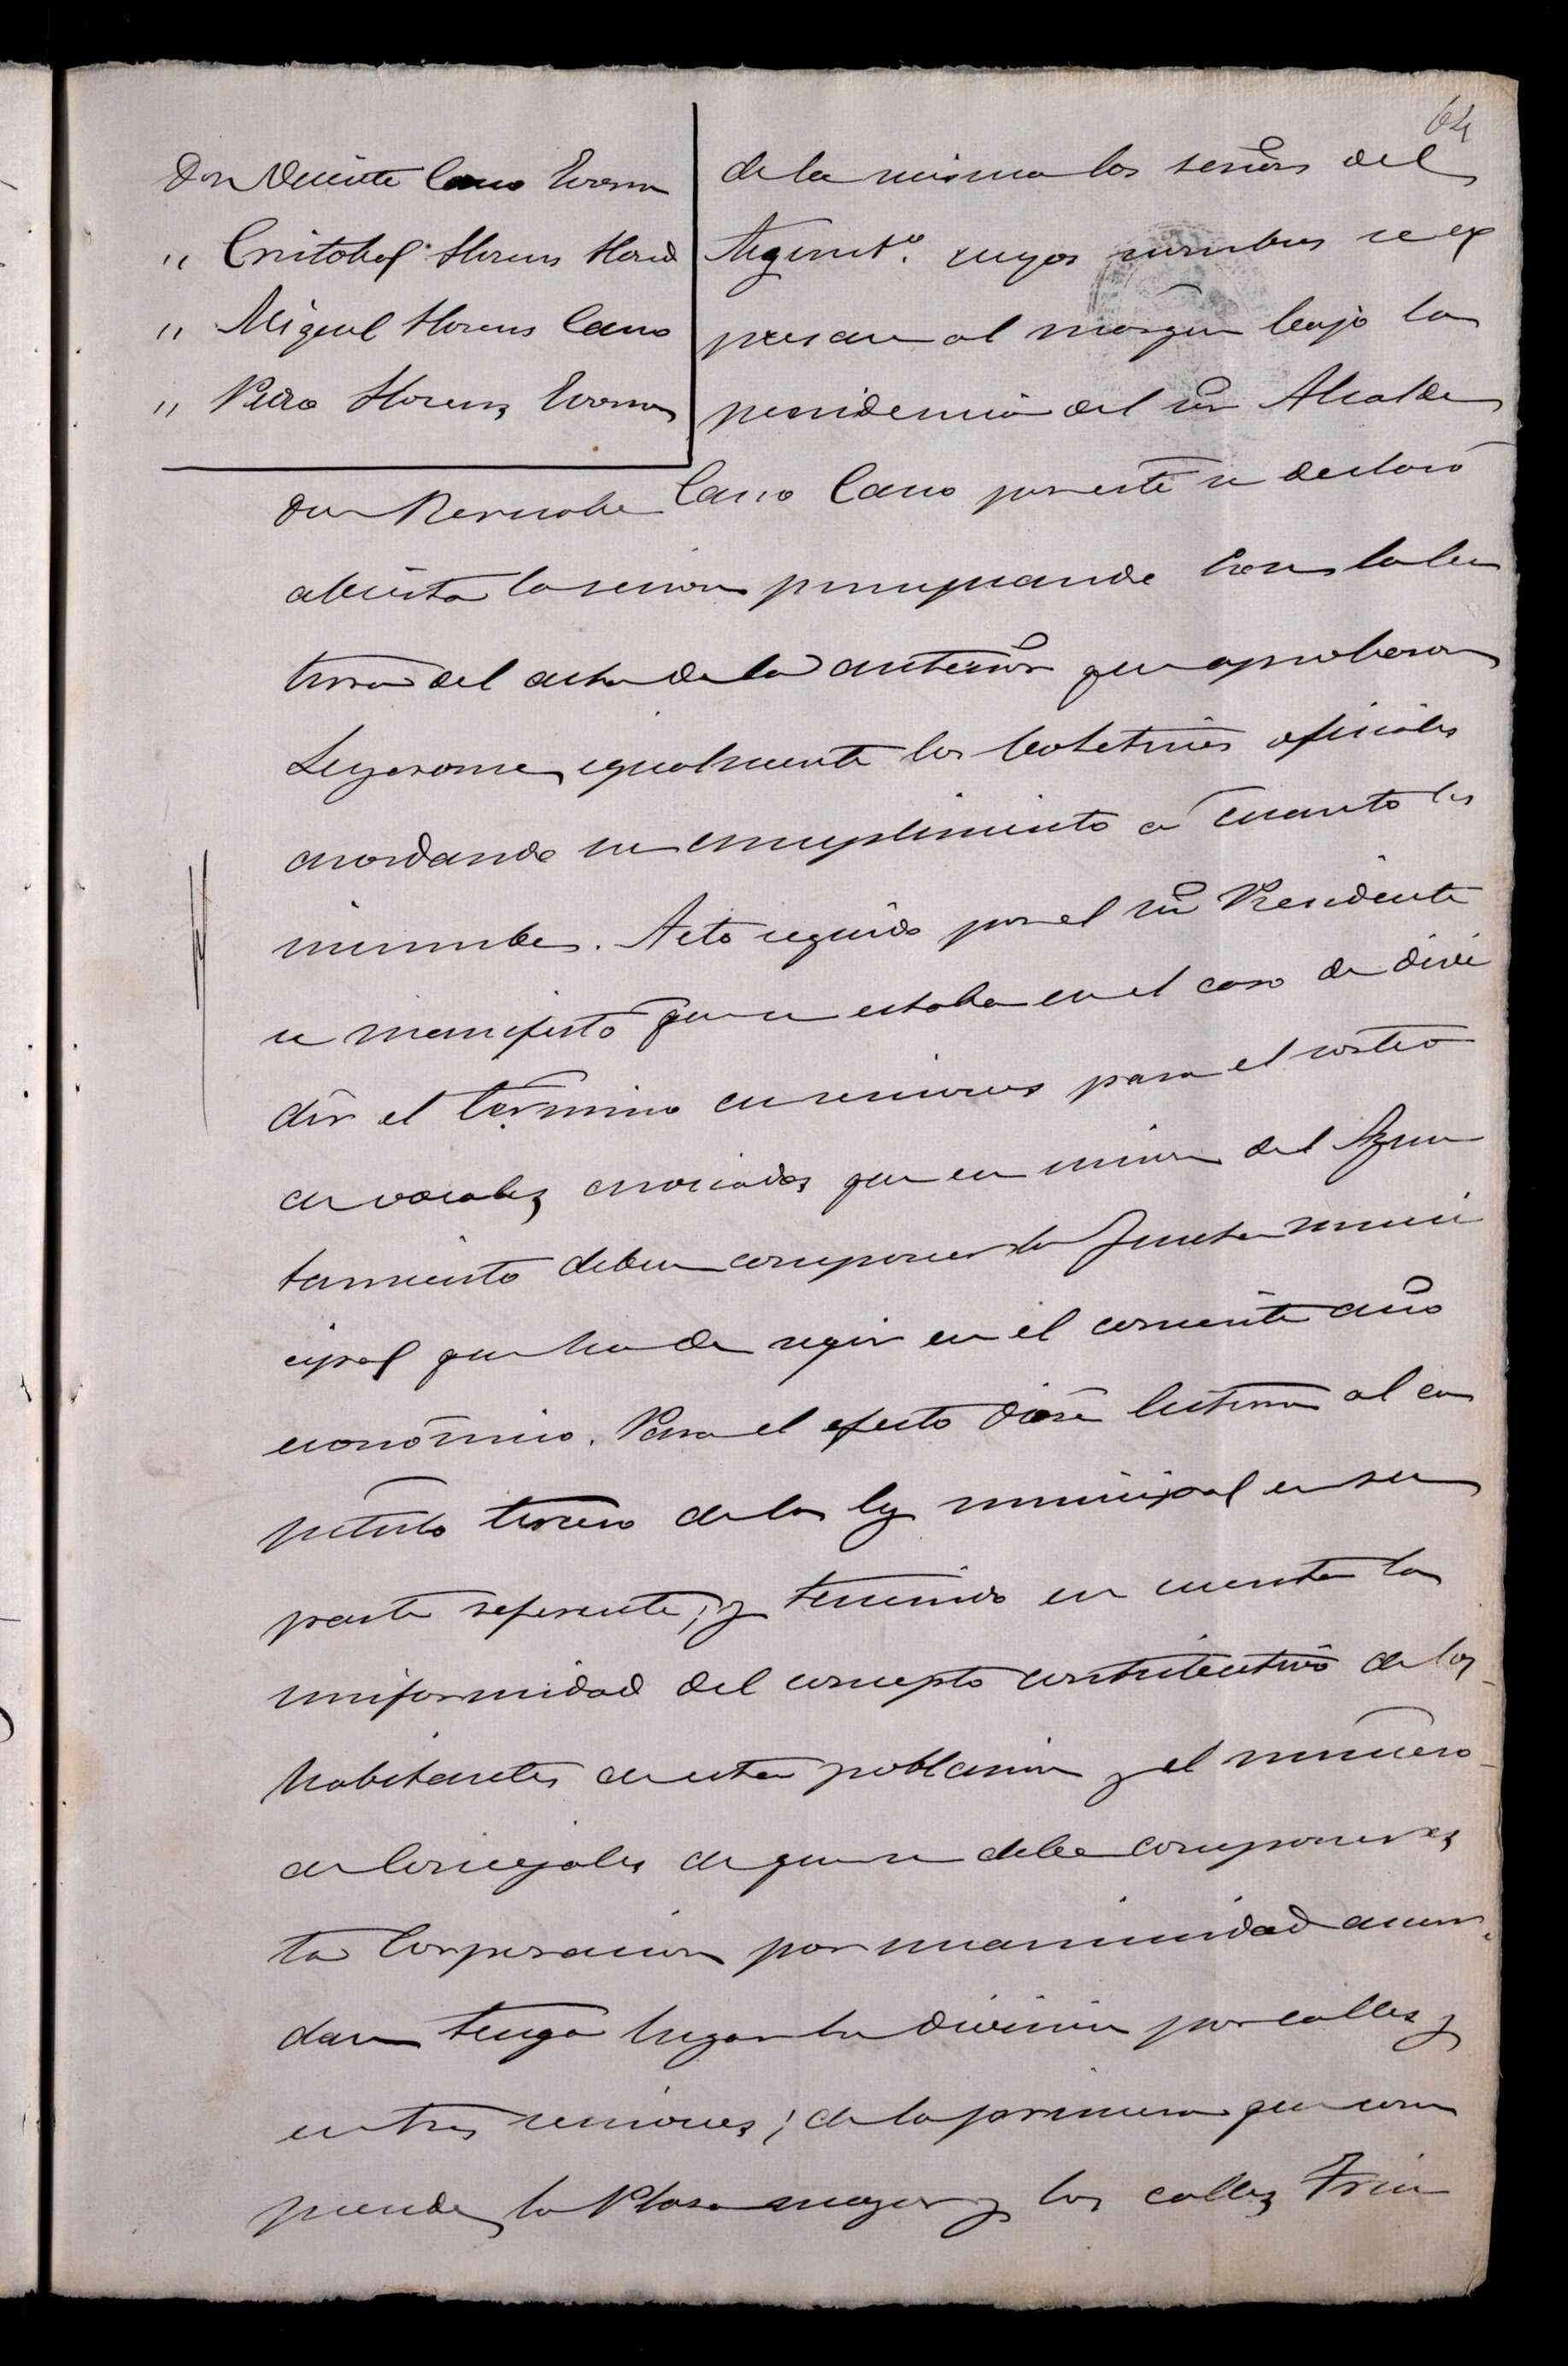 64
Don Vicente Cano Ivorra
" Cristobal Llorens Llored
" Miguel Llorens Cano
" Pedro Llorens Ivorra
de la misma los señores del
Ayunt.º cuyos nombres se ex
presan al margen bajo la
presidencia del Sor Alcalde
Don Bernabe Cano Cano por este se declaró
abierta la sesion principiando con la lec
tura del acta de la anterior que aprobaron
Leyeronse igualmente los boletines oficiales
acordando su cumplimiento a cuanto les
incumbe. Acto seguido por el Sor Presidente
se manifestó que se estaba en el caso de divi
dir el término en secciones para el sorteo
de vocales asociados que en union del Ayun
tamiento deben componer la Junta muni
cipal que ha de regir en el corriente año
economico. Para el efecto diose lectura al ca
pitulo tercero de la ley municipal en su
parte referente; y teniendo en cuenta la
uniformidad del concepto contributivo de los
habitantes de esta poblacion y el número
de Concejales de que se debe componer es
ta Corporacion por unanimidad acuer
dan tenga lugar la division por calles y
en tres secciones; de la primera que com
prende la Plasa mayor y las calles Trin